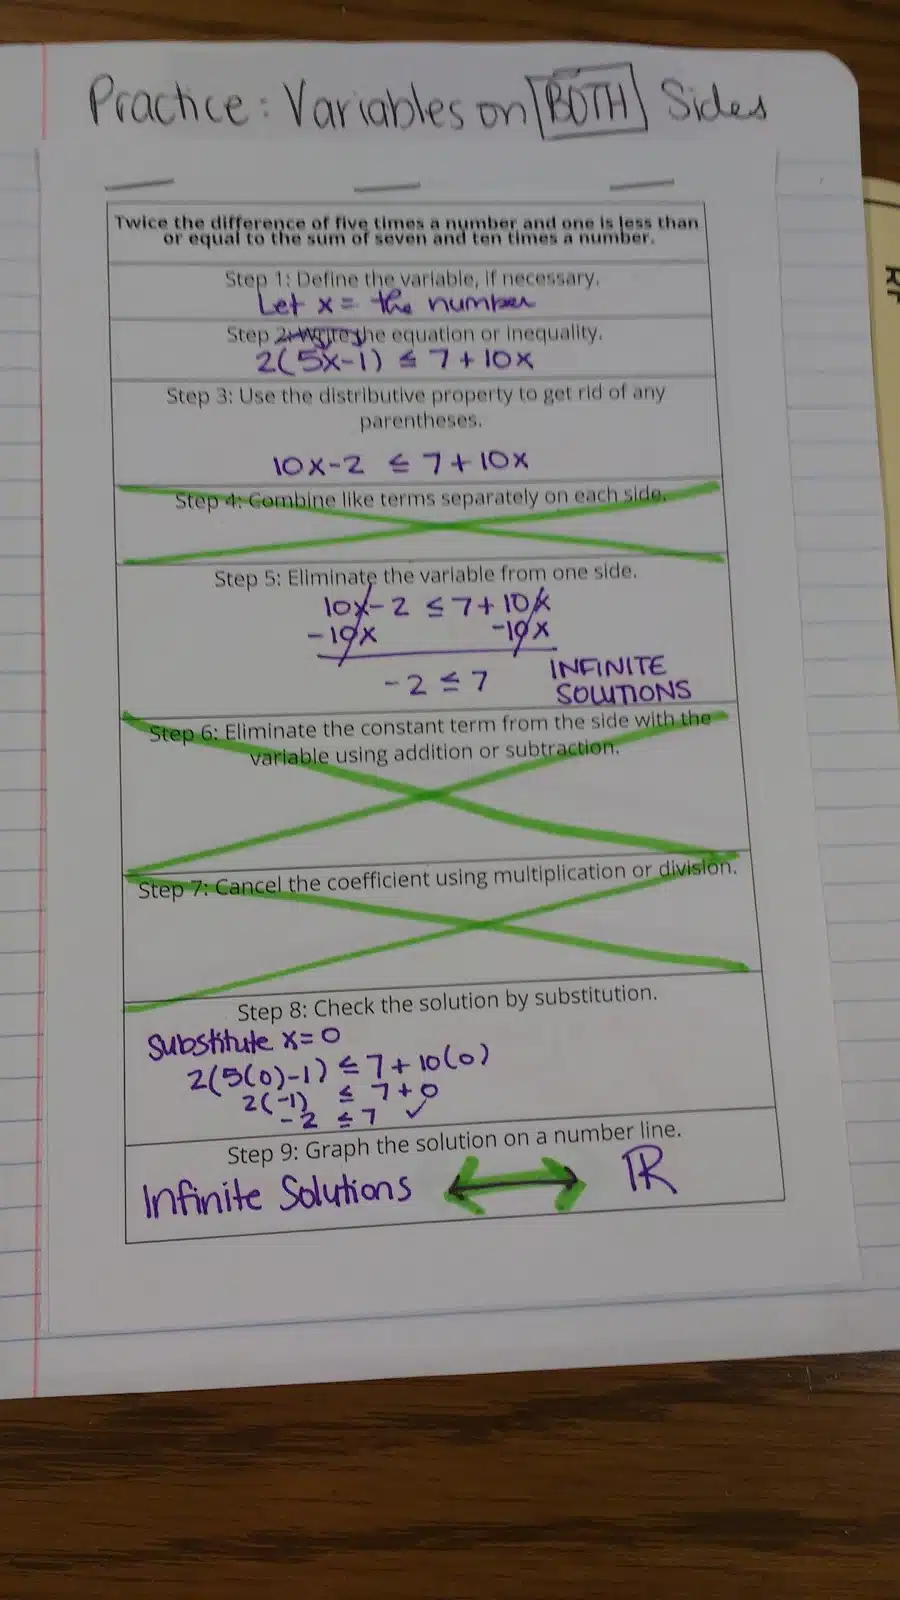 Practice: Variables on BOTH Sides
Twice the difference of five times a number and one is less than
or equal to the sum of seven and ten times a number.
Step 1: Define the variable, if necessary.
Let x = the number
Step 2: Write the equation or inequality.
2(5x-1) ≤ 7+10x
Step 3: Use the distributive property to get rid of any
parentheses.
10x-2 ≤ 7+10x
Step 4: Combine like terms separately on each side.
Step 5: Eliminate the variable from one side.
10x-2 ≤ 7+10x
-10x -10x
-2 ≤ 7 INFINITE
SOLUTIONS
Step 6: Eliminate the constant term from the side with the
variable using addition or subtraction.
Step 7: Cancel the coefficient using multiplication or division.
Step 8: Check the solution by substitution.
Substitute x=0
2(5(0)-1) ≤ 7+10(0)
2(-1) ≤ 7+0
-2 ≤ 7 ✓
Step 9: Graph the solution on a number line.
Infinite Solutions ℝ